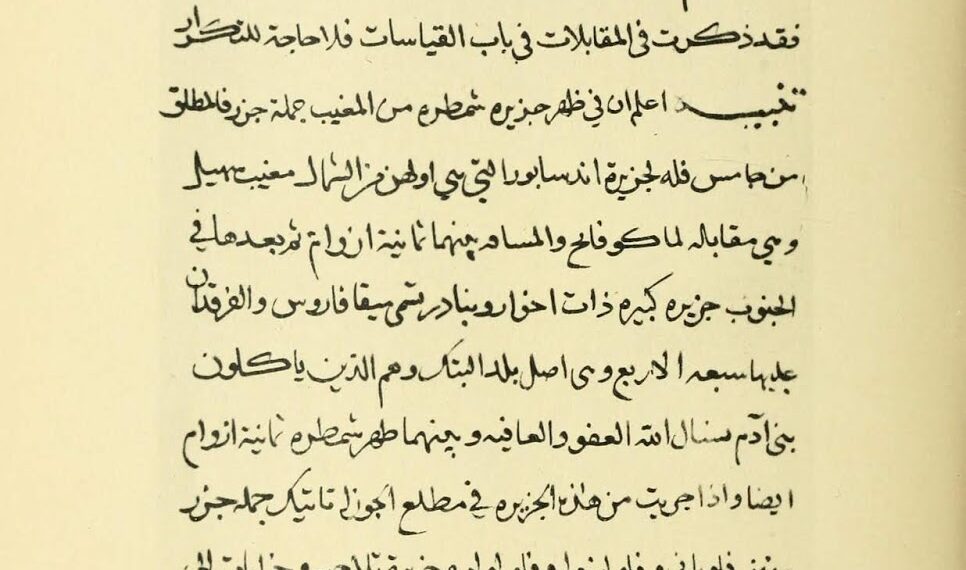 فقد ذكرت في المقابلات في باب القياسات فلا حاجة للتكرار
تنبيه اعلم ان في ظهر جزيره شمطره من المغيب جملة جزر فالمطلق
من جامس فله لجزيرة اندسابورا التي هي اولهن من الشمال مغيب سهيل
وهي مقابله لماكوفانج والمسافه بينهما ثمانية ازوام ثم بعدها في
الجنوب جزيره كبيره ذات اخوار وبنادر تسمى ميقافاروس والفرقدان
عليها سبعه الا ربع وهى اصل بلد البتك وهم الذين ياكلون
بنى آدم سنال الله العفو والعافيه وبينهما ظهر شمطره ثمانية ازوام
ايضا واذا جريت من هذه الجزيره في مطلع الجوزا تاتيك جمله جزر